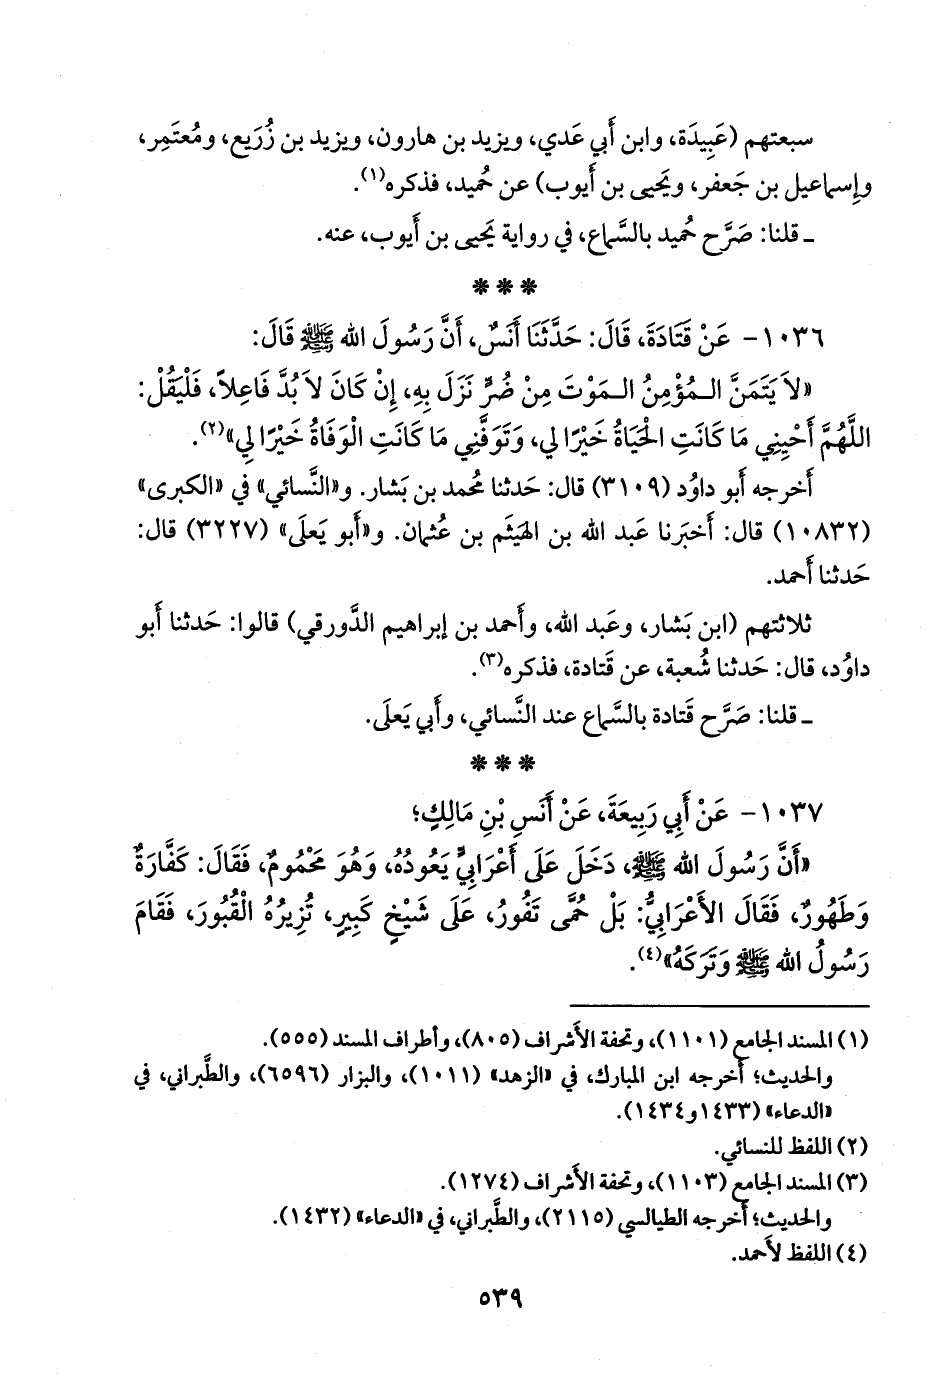 سبعتهم (عَبِيدَة، وابن أَبي عَدي، ويزيد بن هارون، ويزيد بن زُرَيع، ومُعتَمِر،
وإِسماعيل بن جَعفر، ويَحيى بن أَيوب) عن حُميد، فذكره(١).
ـ قلنا: صَرَّح حُميد بالسَّماع، في رواية يَحيى بن أَيوب، عنه.
* * *
١٠٣٦- عَنْ قَتَادَةَ، قَالَ: حَدَّثَنَا أَنَسٌ، أَنَّ رَسُولَ الله ﷺ قَالَ:
«لاَ يَتَمَنَّ الـمُؤْمِنُ الـمَوْتَ مِنْ ضُرٍّ نَزَلَ بِهِ، إِنْ كَانَ لاَ بُدَّ فَاعِلاً، فَلْيَقُلْ:
اللَّهُمَّ أَحْيِنِي مَا كَانَتِ الْحَيَاةُ خَيْرًا لِي، وَتَوَفَّنِي مَا كَانَتِ الْوَفَاةُ خَيْرًا لِي»(٢).
أَخرجه أَبو داوُد (٣١٠٩) قال: حَدثنا مُحمد بن بَشار. و«النَّسائي» في «الكبرى»
(١٠٨٣٢) قال: أَخبَرنا عَبد الله بن الهَيثَم بن عُثمان. و«أَبو يَعلَى» (٣٢٢٧) قال:
حَدثنا أَحمد.
ثلاثتهم (ابن بَشار، وعَبد الله، وأَحمد بن إِبراهيم الدَّورقي) قالوا: حَدثنا أَبو
داوُد، قال: حَدثنا شُعبة، عن قَتادة، فذكره(٣).
ـ قلنا: صَرَّح قَتادة بالسَّماع عند النَّسائي، وأَبي يَعلَى.
* * *
١٠٣٧- عَنْ أَبِي رَبِيعَةَ، عَنْ أَنَسِ بْنِ مَالِكٍ؛
«أَنَّ رَسُولَ الله ﷺ، دَخَلَ عَلَى أَعْرَابِيٍّ يَعُودُهُ، وَهُوَ مَحْمُومٌ، فَقَالَ: كَفَّارَةٌ
وَطَهُورٌ، فَقَالَ الأَعْرَابِيُّ: بَلْ حُمَّى تَفُورُ، عَلَى شَيْخٍ كَبِيرٍ، تُزِيرُهُ الْقُبُورَ، فَقَامَ
رَسُولُ الله ﷺ وَتَرَكَهُ»(٤).
(١) المسند الجامع (١١٠١)، وتحفة الأَشراف (٨٠٥)، وأطراف المسند (٥٥٥).
والحديث؛ أَخرجه ابن المبارك، في «الزهد» (١٠١١)، والبزار (٦٥٩٦)، والطَّبراني، في
«الدعاء» (١٤٣٣ و١٤٣٤).
(٢) اللفظ للنسائي.
(٣) المسند الجامع (١١٠٣)، وتحفة الأَشراف (١٢٧٤).
والحديث؛ أَخرجه الطيالسي (٢١١٥)، والطَّبراني، في «الدعاء» (١٤٣٢).
(٤) اللفظ لأَحمد.
٥٣٩